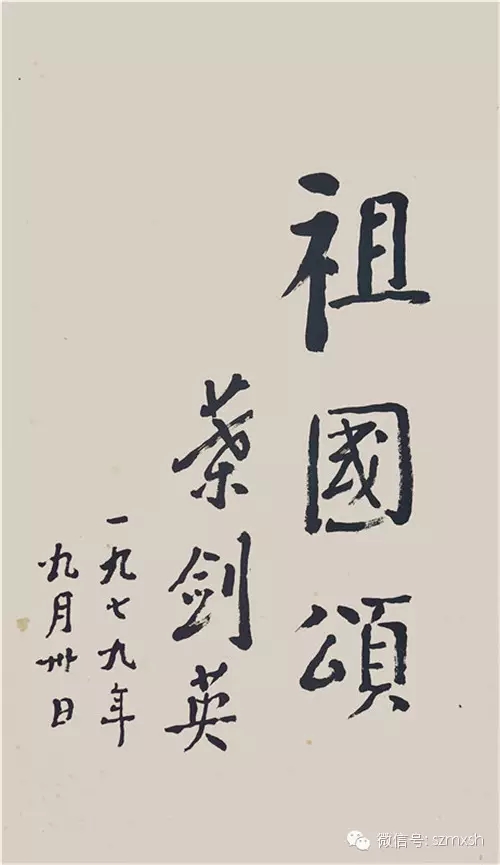 祖國頌
葉剑英
一九七九年
九月卅日
微信号: szmxsh